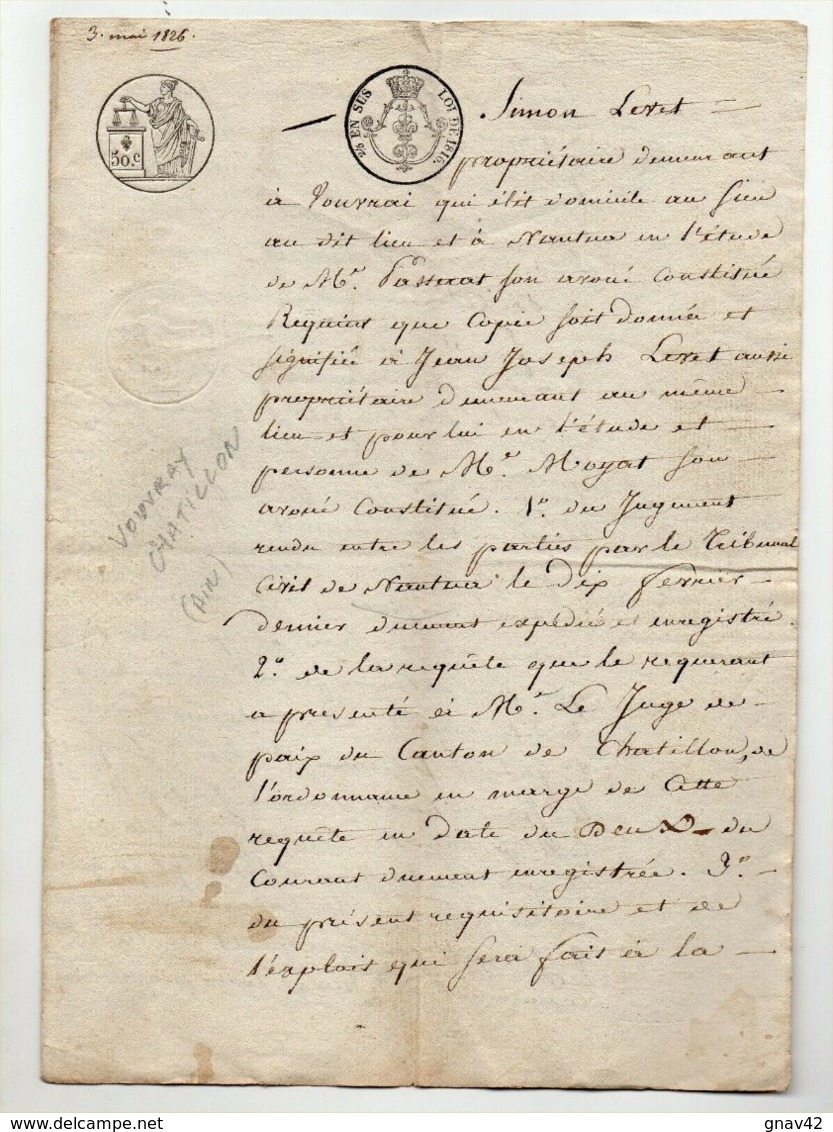 3. mai 1826.
50.c
2/5 EN SUS LOI DE 1816.
Simon Levet
propriétaire demeurant
à Vouvrai qui élit domicile au sieu
au dit lieu et à Nantua en l'étude
de Mr. Passerat son avoué Constitué
Requiert que Copie soit donnée et
signifiée à Jean Joseph Levet aussi
propriétaire demeurant au même
lieu et pour lui en l'étude et
personne de Me. Moyat son
avoué Constitué. 1o. du Jugement
rendu entre les parties par le Tribunal
Civil de Nantua le dix fevrier
dernier duement expédié et enregistré.
2o. de la requête que le requerant
a presenté à Mr. Le Juge de
paix du Canton de Chatillon, de
l'ordonnance en marge de Cette
requête en Date du Deux du
Courant duement enregistrée. 3o.
du présent requisitoire et de
l'exploit qui sera fait à la
VOUVRAY
CHATILLON
(AIN)
www.delcampe.net
gnav42